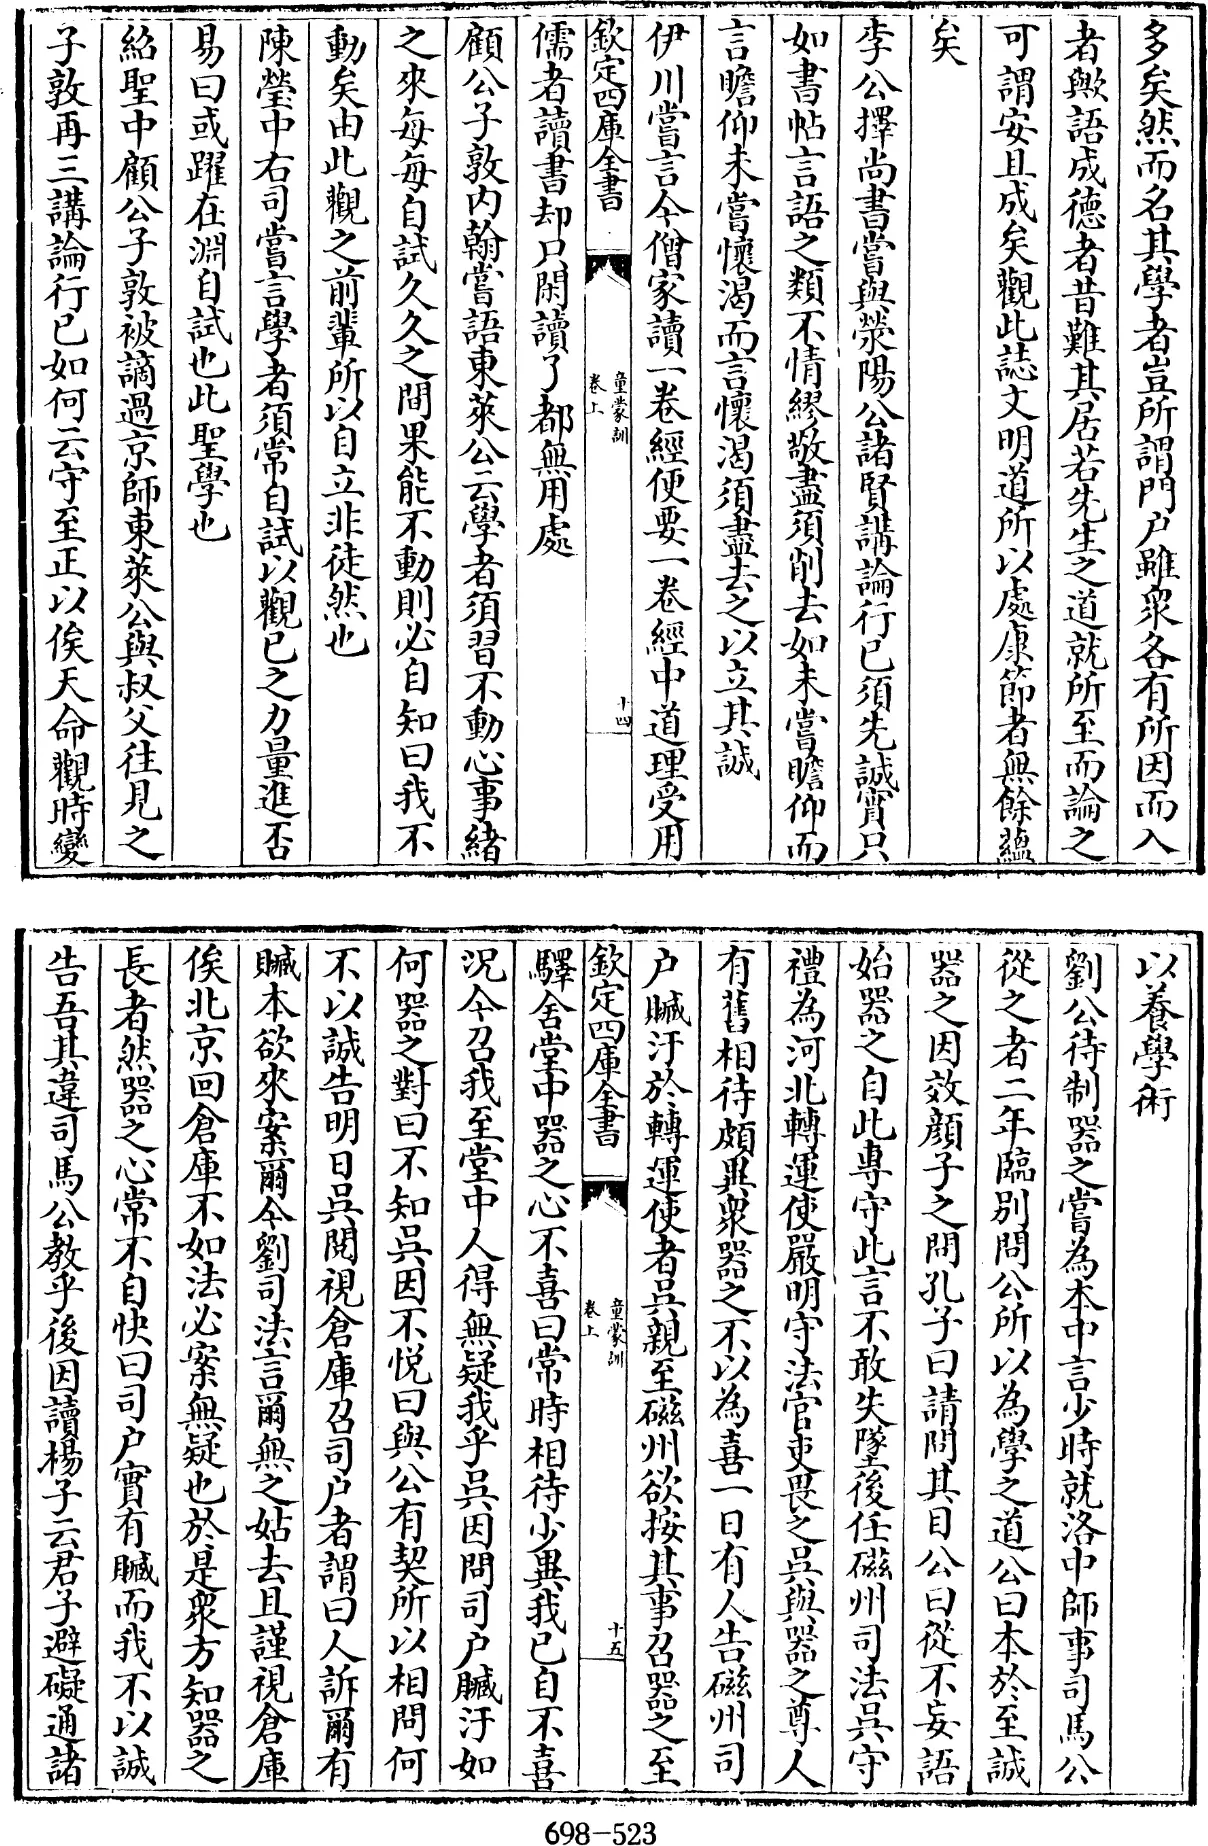 多矣然而名其學者豈所謂門户雖衆各有所因而入
者歟語成德者昔難其居若先生之道就所至而論之
可謂安且成矣觀此誌文明道所以處康節者無餘蘊
矣
李公擇尚書嘗與滎陽公諸賢講論行已須先誠實只
如書帖言語之類不情繆敬盡須削去如未嘗瞻仰而
言瞻仰未嘗懷渴而言懷渴須盡去之以立其誠
伊川嘗言今僧家讀一卷經便要一卷經中道理受用
欽定四庫全書
童蒙訓
卷上
十四
儒者讀書却只閑讀了都無用處
顧公子敦内翰嘗語東萊公云學者須習不動心事緒
之來每每自試久久之間果能不動則必自知曰我不
動矣由此觀之前輩所以自立非徒然也
陳瑩中右司嘗言學者須常自試以觀已之力量進否
易曰或躍在淵自試也此聖學也
紹聖中顧公子敦被謫過京師東萊公與叔父往見之
子敦再三講論行已如何云守至正以俟天命觀時變
以養學術
劉公待制器之嘗為本中言少時就洛中師事司馬公
從之者二年臨别問公所以為學之道公曰本於至誠
器之因效顔子之問孔子曰請問其目公曰從不妄語
始器之自此專守此言不敢失墜後任磁州司法吳守
禮為河北轉運使嚴明守法官吏畏之吳與器之尊人
有舊相待頗異衆器之不以為喜一日有人告磁州司
户贓汙於轉運使者吳親至磁州欲按其事召器之至
欽定四庫全書
童蒙訓
卷上
十五
驛舍堂中器之心不喜曰常時相待少異我已自不喜
况今召我至堂中人得無疑我乎吳因問司户贓汙如
何器之對曰不知吳因不悦曰與公有契所以相問何
不以誠告明日吳閱視倉庫召司户者謂曰人訴爾有
贓本欲來案爾今劉司法言爾無之姑去且謹視倉庫
俟北京回倉庫不如法必案無疑也於是衆方知器之
長者然器之心常不自快曰司户實有贓而我不以誠
告吾其違司馬公教乎後因讀楊子云君子避礙通諸
698-523